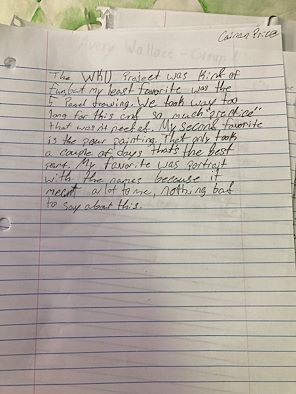 Cairan Price
The WKU Project was kink of
fun, but my least favorite was the
5 Panel drawing. We took way too
long for this one so much "practice"
that wasn't needed. My second favorite
is the pour painting. That only took
a couple of days thats the best
part. My favorite was Portrait
with the names because it
meant a lot to me, nothing bad
to say about this.